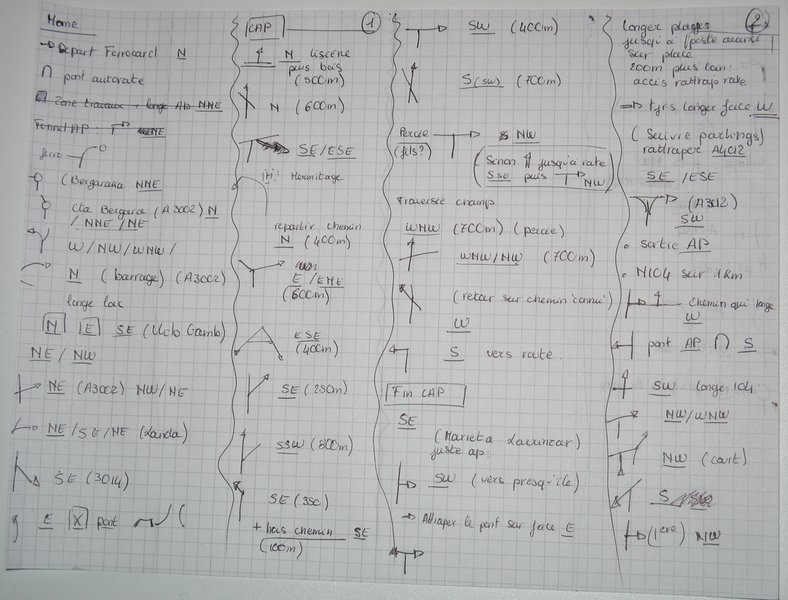 Home
Départ Ferrocarril N
∩ pont autoroute
Zone travaux → longe AP NNE
Tunnel AP : NNE
(Bergaraka NNE
cta Bergara (A3002) N
/ NNE / NE
W/NW/WNW/
N (barrage) (A3002)
longe lac
N E SE (Ullib Gamb)
NE / NW
NE (A3002) NW/NE
NE/SE/NE (Landa)
SE (3014)
E X pont
CAP
1
N lisière
puis bois
(500m)
N (600m)
SE/ESE
H : Hermitage
repartir chemin
N (400m)
E
/ ENE
(600m)
ESE
(400m)
SE (250m)
SSW (800m)
SE (350)
+ hors chemin SE
(100m)
SW (400m)
S (SW) (700m)
Percée NW
(fils?)
(Sinon jusqu'à route
SSE puis NW
Traversée champ
WNW (700m) (percée)
WNW/NW (700m)
(retour sur chemin "connu")
W
S vers route.
Fin CAP
SE
(Marieta Larrinzar)
juste ap.
SW (vers presqu'île)
→ Attraper le pont sur face E
2
Longer plages
jusqu'à poste avancé
sur place
200m plus loin :
accès rattrap route
⇒ tjrs longer face W
(Suivre parkings)
rattraper A4012
SE / ESE
(A3012)
SW
• sortie AP
• N104 sur 1km
chemin qui longe
W
pont AP ∩ S
SW longe 104
NW/WNW
NW (court)
S
(1ère) NW